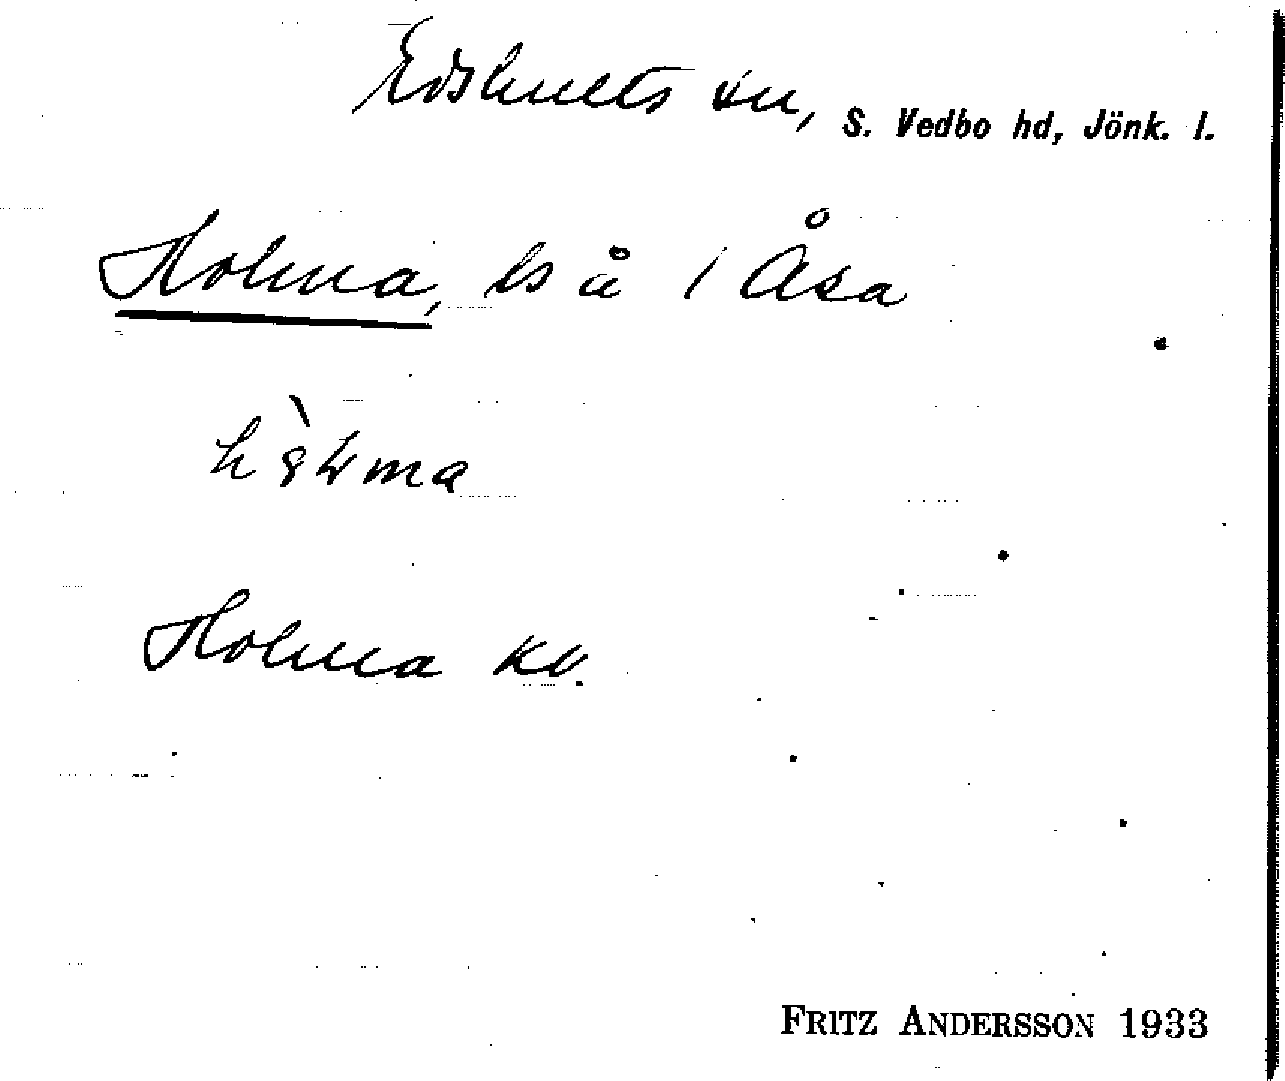 Edshults sn, S. Vedbo hd, Jönk. l.
Holma, ls å 1 Åsa
Holma kv.
FRITZ ANDERSSON 1933